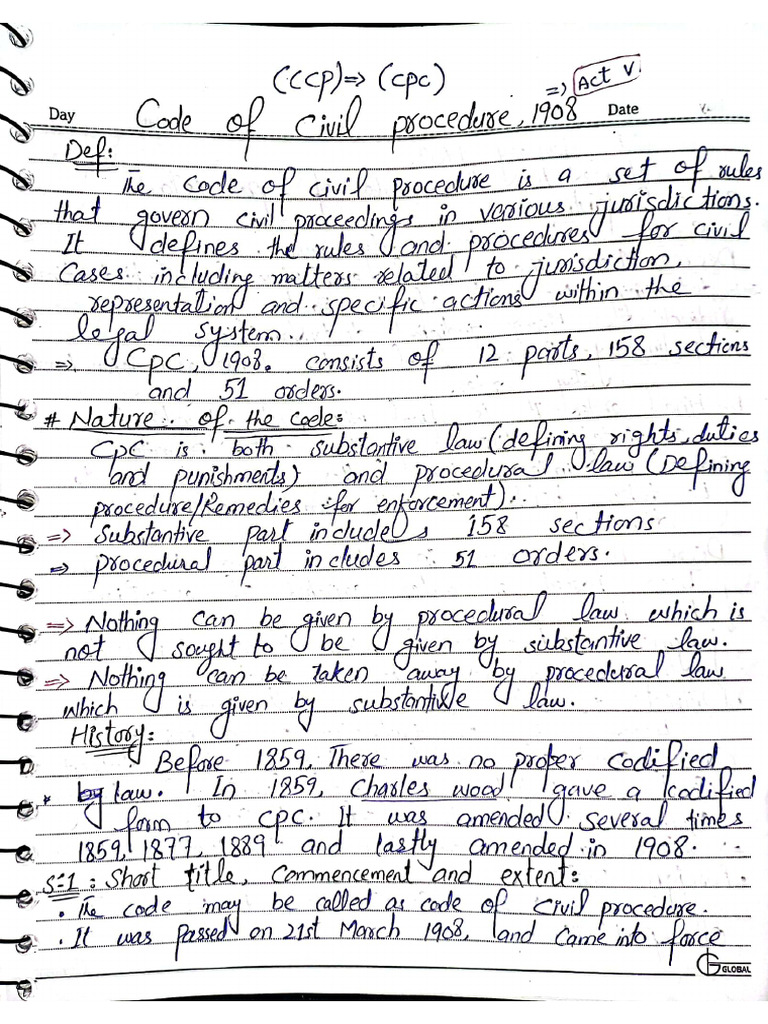 (CCP) => (CPC)
=> Act V
Day Code of Civil procedure, 1908 Date
Def:
The Code of civil procedure is a set of rules
that govern civil proceedings in various jurisdictions.
It defines the rules and procedures for civil
Cases including matters related to jurisdiction,
representation and specific actions within the
legal system.
=> CPC, 1908. consists of 12 parts, 158 sections
and 51 orders.
# Nature of the code:
CPC is both substantive law (defining rights, duties
and punishments) and procedural law (Defining
procedure/Remedies for enforcement).
=> Substantive part includes 158 sections
=> procedural part includes 51 orders.
=> Nothing can be given by procedural law which is
not sought to be given by substantive law.
=> Nothing can be taken away by procedural law
which is given by substantive law.
History:
Before 1859, There was no proper codified
* law. In 1859, Charles wood gave a codified
form to CPC. It was amended several times
1859, 1877, 1889 and lastly amended in 1908.
S-1: Short title, Commencement and extent:
• The code may be called as code of Civil procedure.
• It was passed on 21st March 1908, and came into force
GLOBAL